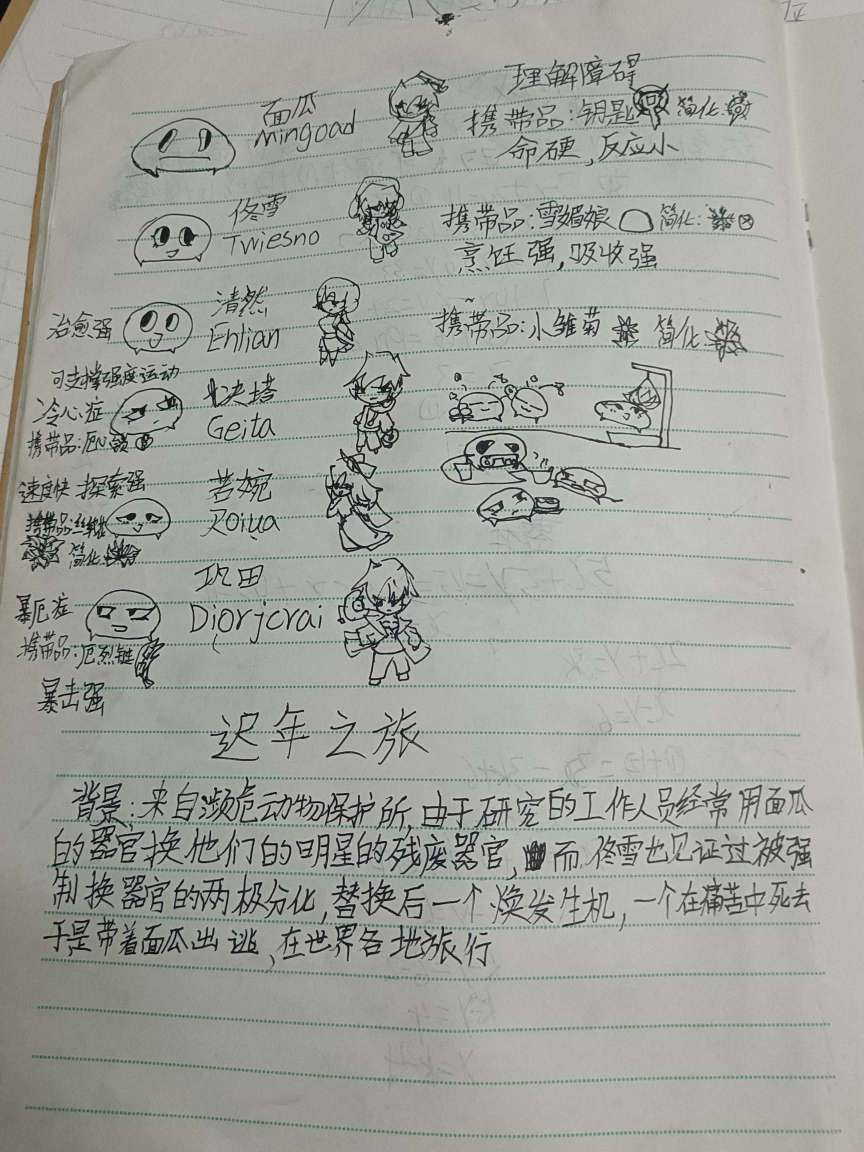 面瓜
mingoad
理解障碍
携带品:钥匙 简化:
命硬,反应小
佟雪
Twiesno
携带品:雪媚娘 简化:
烹饪强,吸收强
治愈强
清然
Enlian
携带品:小雏菊 简化:
可支撑强度运动
冷心症
携带品:厄心锁
Geita
速度快 探索强
携带品:丝
简化:
若婉
Zoiua
暴厄症
携带品:厄烈链
暴击强
巩田
Diorjcrai
迟年之旅
背景:来自濒危动物保护所,由于研究的工作人员经常用面瓜
的器官换他们的明星的残废器官,而佟雪也见证过被强
制换器官的两极分化,替换后一个焕发生机,一个在痛苦中死去
于是带着面瓜出逃,在世界各地旅行